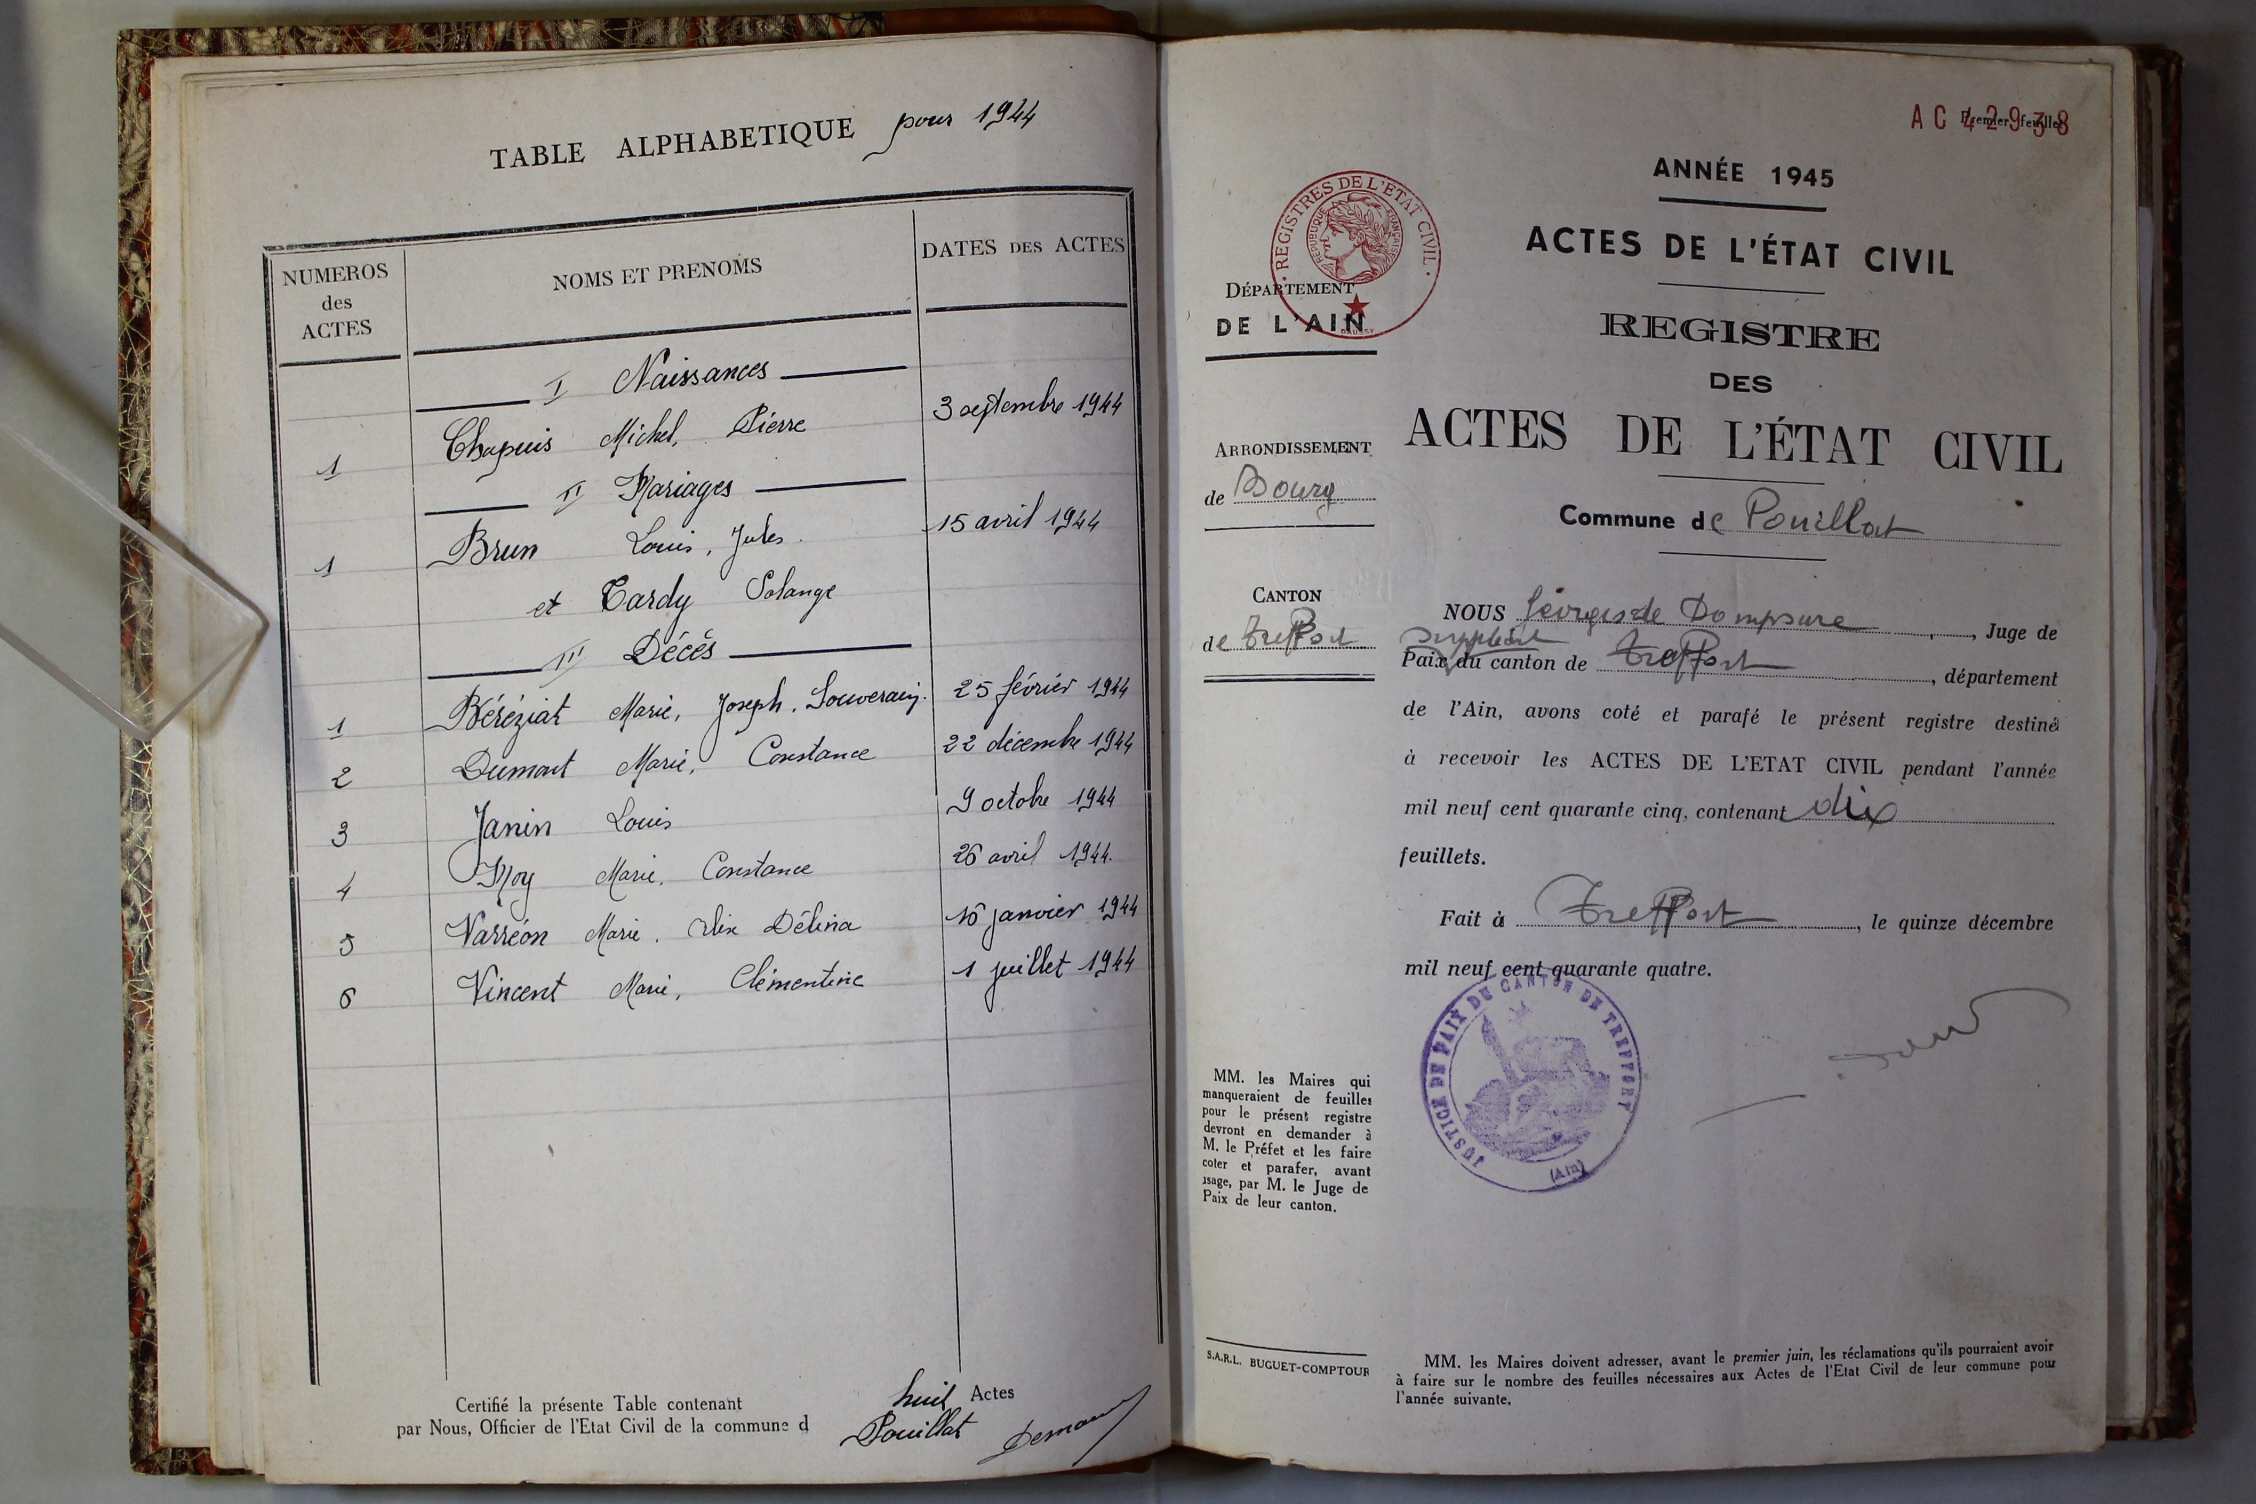 TABLE ALPHABETIQUE pour 1944
NUMEROS des ACTES
NOMS ET PRENOMS
DATES DES ACTES
I Naissances
1 Chapuis Michel, Pierre 3 septembre 1944
II Mariages
1 Brun Louis, Jules. 15 avril 1944
et Tardy Solange
III Décès
1 Béréziat Marie, Joseph, Souverain. 25 février 1944
2 Dumont Marie, Constance 22 décembre 1944
3 Janin Louis 9 octobre 1944
4 Moy Marie, Constance 26 avril 1944.
5 Varréon Marie, Alix Délina 10 janvier 1944
6 Vincent Marie, Clémentine 1 juillet 1944
Certifié la présente Table contenant huit Actes
par Nous, Officier de l'Etat Civil de la commune d Pouillat
AC 42938
Premier feuillet
REGISTRES DE L'ETAT CIVIL
REPUBLIQUE FRANÇAISE
DÉPARTEMENT
DE L'AIN
ARRONDISSEMENT
de Bourg
CANTON
de Treffort
MM. les Maires qui
manqueraient de feuilles
pour le présent registre
devront en demander à
M. le Préfet et les faire
coter et parafer, avant
usage, par M. le Juge de
Paix de leur canton.
S.A.R.L. BUGUET-COMPTOUR
ANNÉE 1945
ACTES DE L'ÉTAT CIVIL
REGISTRE
DES
ACTES DE L'ÉTAT CIVIL
Commune de Pouillat
NOUS Georges de Dompsure, Juge de
suppléant
Paix du canton de Treffort, département
de l'Ain, avons coté et parafé le présent registre destiné
à recevoir les ACTES DE L'ETAT CIVIL pendant l'année
mil neuf cent quarante cinq, contenant dix
feuillets.
Fait à Treffort, le quinze décembre
mil neuf cent quarante quatre.
JUSTICE DE PAIX DU CANTON DE TREFFORT
(Ain)
MM. les Maires doivent adresser, avant le premier juin, les réclamations qu'ils pourraient avoir
à faire sur le nombre des feuilles nécessaires aux Actes de l'Etat Civil de leur commune pour
l'année suivante.